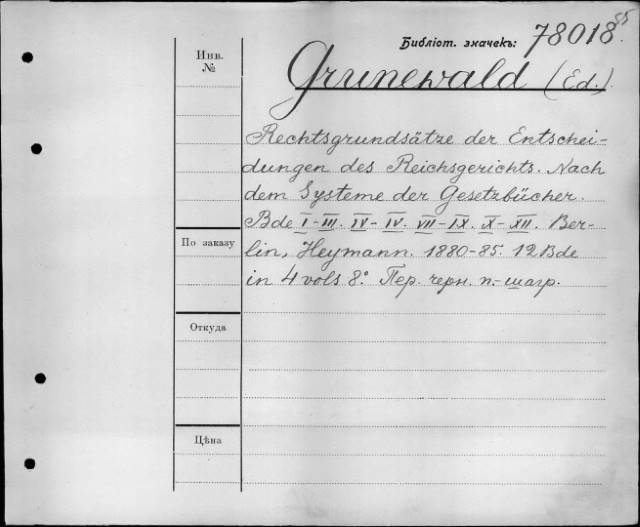 85
Библіот. значекъ: 78018.
Инв.
№
Grunewald (Ed.)
Rechtsgrundsätze der Entschei-
dungen des Reichsgerichts. Nach
dem Systeme der Gesetzbücher.
Bde I-III. IV-IV. VII-IX. X-XII. Ber-
По заказу
lin, Heymann. 1880-85. 12 Bde
in 4 vols 8° Пер. черн. п.-шагр.
Откуда
Цѣна